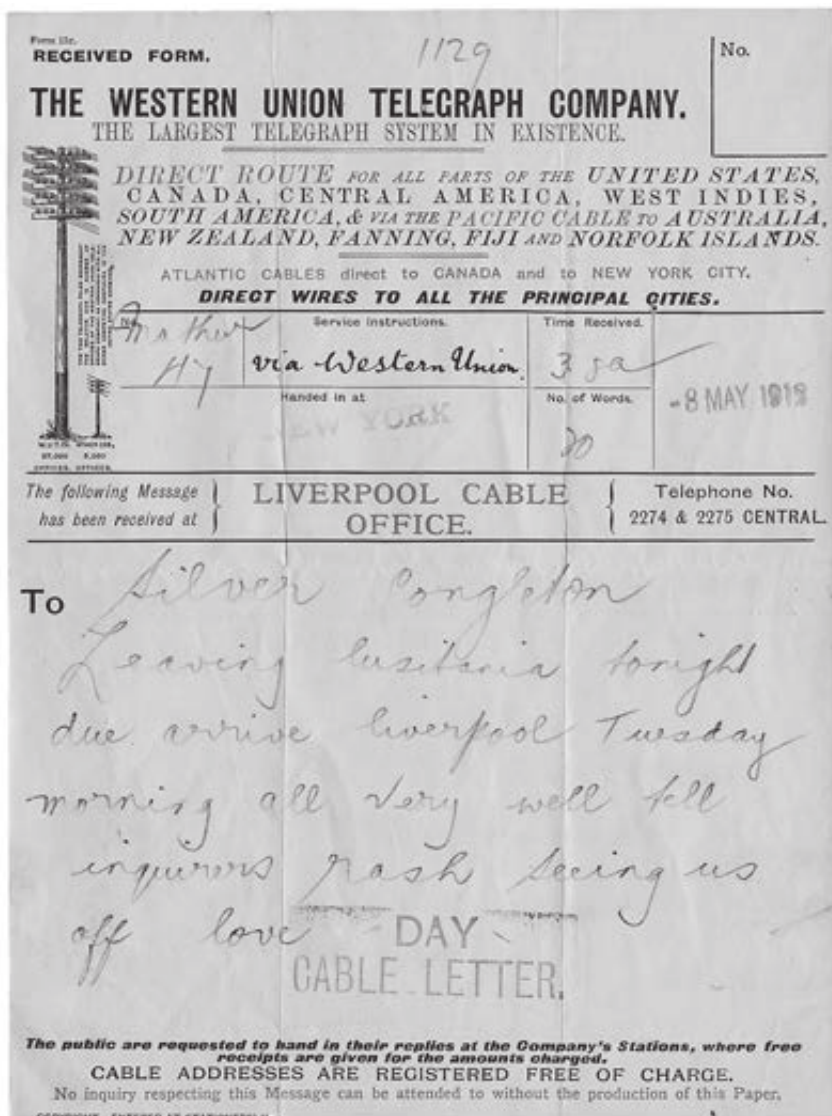 Form 13c.
RECEIVED FORM.
1129
No.
THE WESTERN UNION TELEGRAPH COMPANY.
THE LARGEST TELEGRAPH SYSTEM IN EXISTENCE.
DIRECT ROUTE FOR ALL PARTS OF THE UNITED STATES,
CANADA, CENTRAL AMERICA, WEST INDIES,
SOUTH AMERICA, & VIA THE PACIFIC CABLE TO AUSTRALIA,
NEW ZEALAND, FANNING, FIJI AND NORFOLK ISLANDS.
ATLANTIC CABLES direct to CANADA and to NEW YORK CITY.
DIRECT WIRES TO ALL THE PRINCIPAL CITIES.
No.
Service Instructions.
Time Received.
47
via Western Union
3
-8 MAY
Handed in at
No. of Words.
NEW YORK
20
The following Message
has been received at
LIVERPOOL CABLE
OFFICE.
Telephone No.
2274 & 2275 CENTRAL.
To Silver Congleton
Leaving lusitania tonight
due arrive liverpool Tuesday
morning all very well tell
inquirers rash seeing us
off love
DAY
CABLE LETTER.
The public are requested to hand in their replies at the Company's Stations, where free
receipts are given for the amounts charged.
CABLE ADDRESSES ARE REGISTERED FREE OF CHARGE.
No inquiry respecting this Message can be attended to without the production of this Paper.